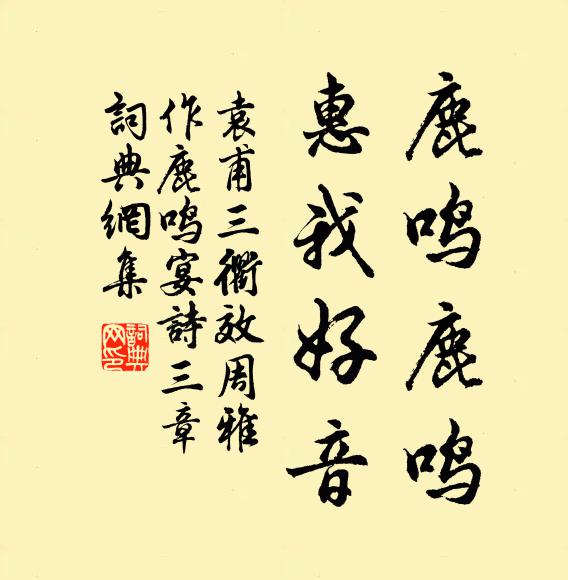 鹿鸣鹿鸣
惠我好音
袁甫三衢效周雅
作鹿鸣宴詩三章
詞典網集
詞典网印